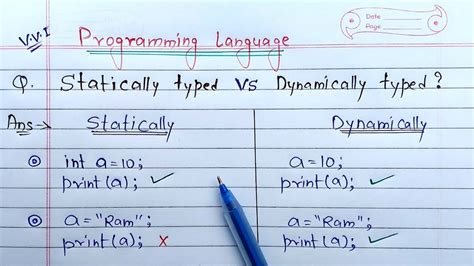 V.V.I
Programming Language
Date
Page
Q. Statically typed VS Dynamically typed?
Ans→ Statically Dynamically
int a=10; a=10;
print(a); ✓ print(a); ✓
a="Ram"; a="Ram";
print(a); x print(a); ✓